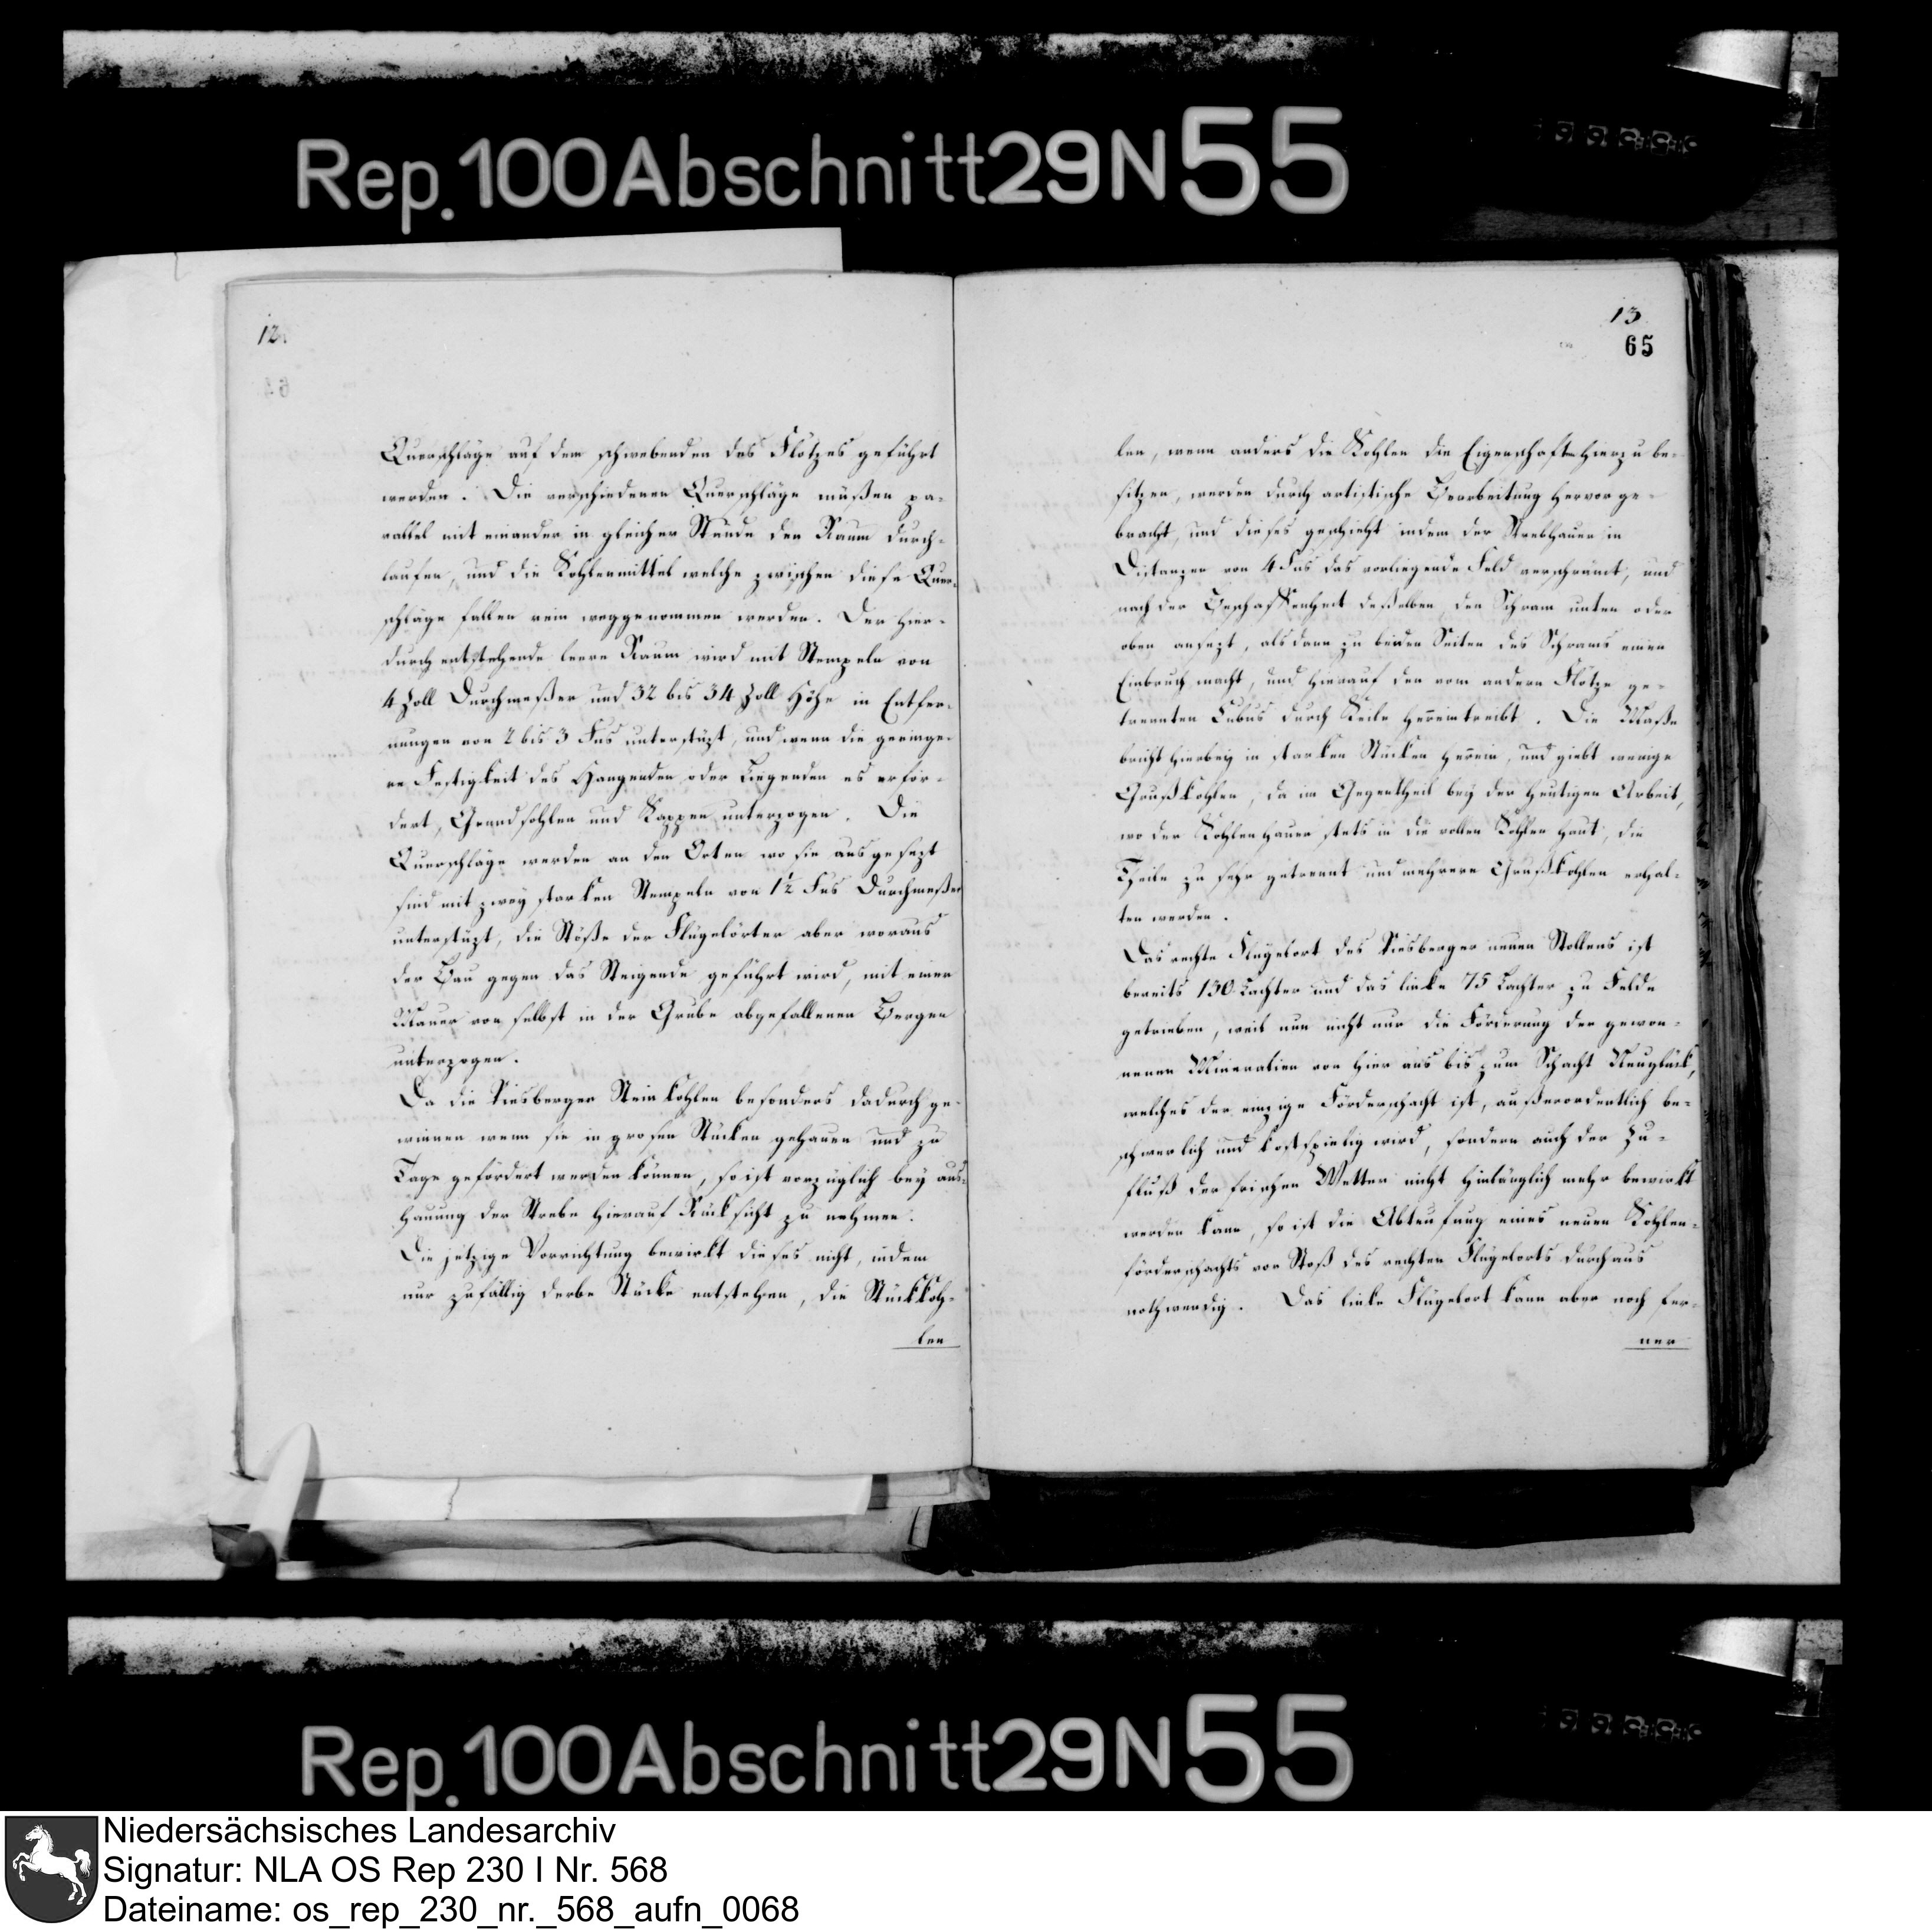 Rep. 100 Abschnitt 29 N 55
12.
Querschläge auf dem schwebenden des Flötzes geführt
werden. Die verschiedenen Querschläge müßen pa-
rallel mit einander in gleicher Stunde den Raum durch-
laufen, und die Kohlenmittel welche zwischen diese Quer-
schläge fallen rein weggenommen werden. Der hier-
durch entstehende leere Raum wird mit Stempeln von
4 Zoll Durchmeßer und 32 bis 34 Zoll Höhe in Entfer-
nungen von 2 bis 3 Fus unterstüzt, und wenn die geringe-
re Festigkeit des Hangenden oder Liegenden es erfor-
dert, Grundsohlen und Kappen unterzogen. Die
Querschläge werden an den Orten wo sie ausgesezt
sind mit zwey starken Stempeln von 1½ Fus Durchmeßer
unterstüzt, die Stöße der Flügelörter aber woraus
der Bau gegen das Steigende geführt wird, mit einer
Mauer von selbst in der Grube abgefallenen Bergen
unterzogen.
Da die Piesberger Steinkohlen besonders dadurch ge-
winnen wenn sie in grosen Stücken gehauen und zu
Tage gefördert werden können, so ist vorzüglich bey aus-
hauung der Strebe hierauf Rücksicht zu nehmen.
Die jetzige Vorrichtung bewirkt dieses nicht, indem
nur zufällig derbe Stücke entstehen, die Stückkoh-
len
13
65
len, wenn anders die Kohlen die Eigenschaft hierzu be-
sitzen, werden durch artistische Bearbeitung hervorge-
bracht, und dieses geschieht indem der Strebhauer in
Distanzen von 4 Fus das vorliegende Feld verschrämt, und
nach der Beschaffenheit deßelben den Schram unten oder
oben ansezt, alsdann zu beiden Seiten des Schrams einen
Einbruch macht, und hierauf den vom andern Flötze ge-
trennten Cubus durch Keile hereintreibt. Die Maße
bricht hierbey in starken Stücken herein, und giebt wenige
Grußkohlen, da im Gegentheil bey der heutigen Arbeit,
wo der Kohlenhauer stets in die vollen Kohlen haut, die
Theile zu sehr getrennt und mehrere Grußkohlen erhal-
ten werden.
Das rechte Flügelort des Piesberger neuen Stollens ist
bereits 130 Lachter und das linke 75 Lachter zu Felde
getrieben, weil nun nicht nur die Förderung der gewon-
nenen Mineralien von hier aus bis zum Schacht Neuglück,
welches der einzige Förderschacht ist, außerordentlich be-
schwerlich und kostspielig wird, sondern auch der Zu-
fluß der frischen Wetter nicht hinlänglich mehr bewirkt
werden kann, so ist die Abteufung eines neuen Kohlen-
förderschachts vor Stoß des rechten Flügelorts durchaus
nothwendig. Das linke Flügelort kann aber noch fer-
ner
Rep. 100 Abschnitt 29 N 55
Niedersächsisches Landesarchiv
Signatur: NLA OS Rep 230 I Nr. 568
Dateiname: os_rep_230_nr._568_aufn_0068